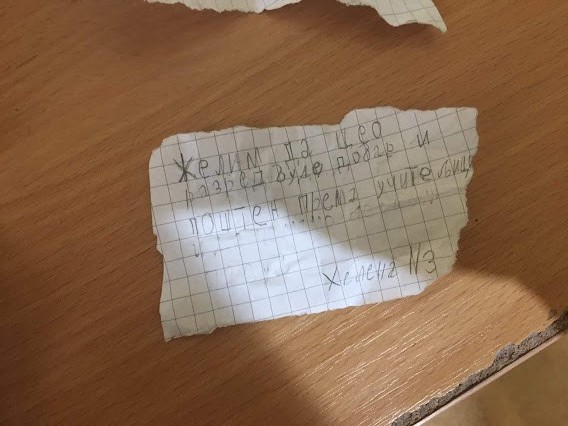 Желим да цео
разред буде добар и
поштен према учитељици
Хелена II3